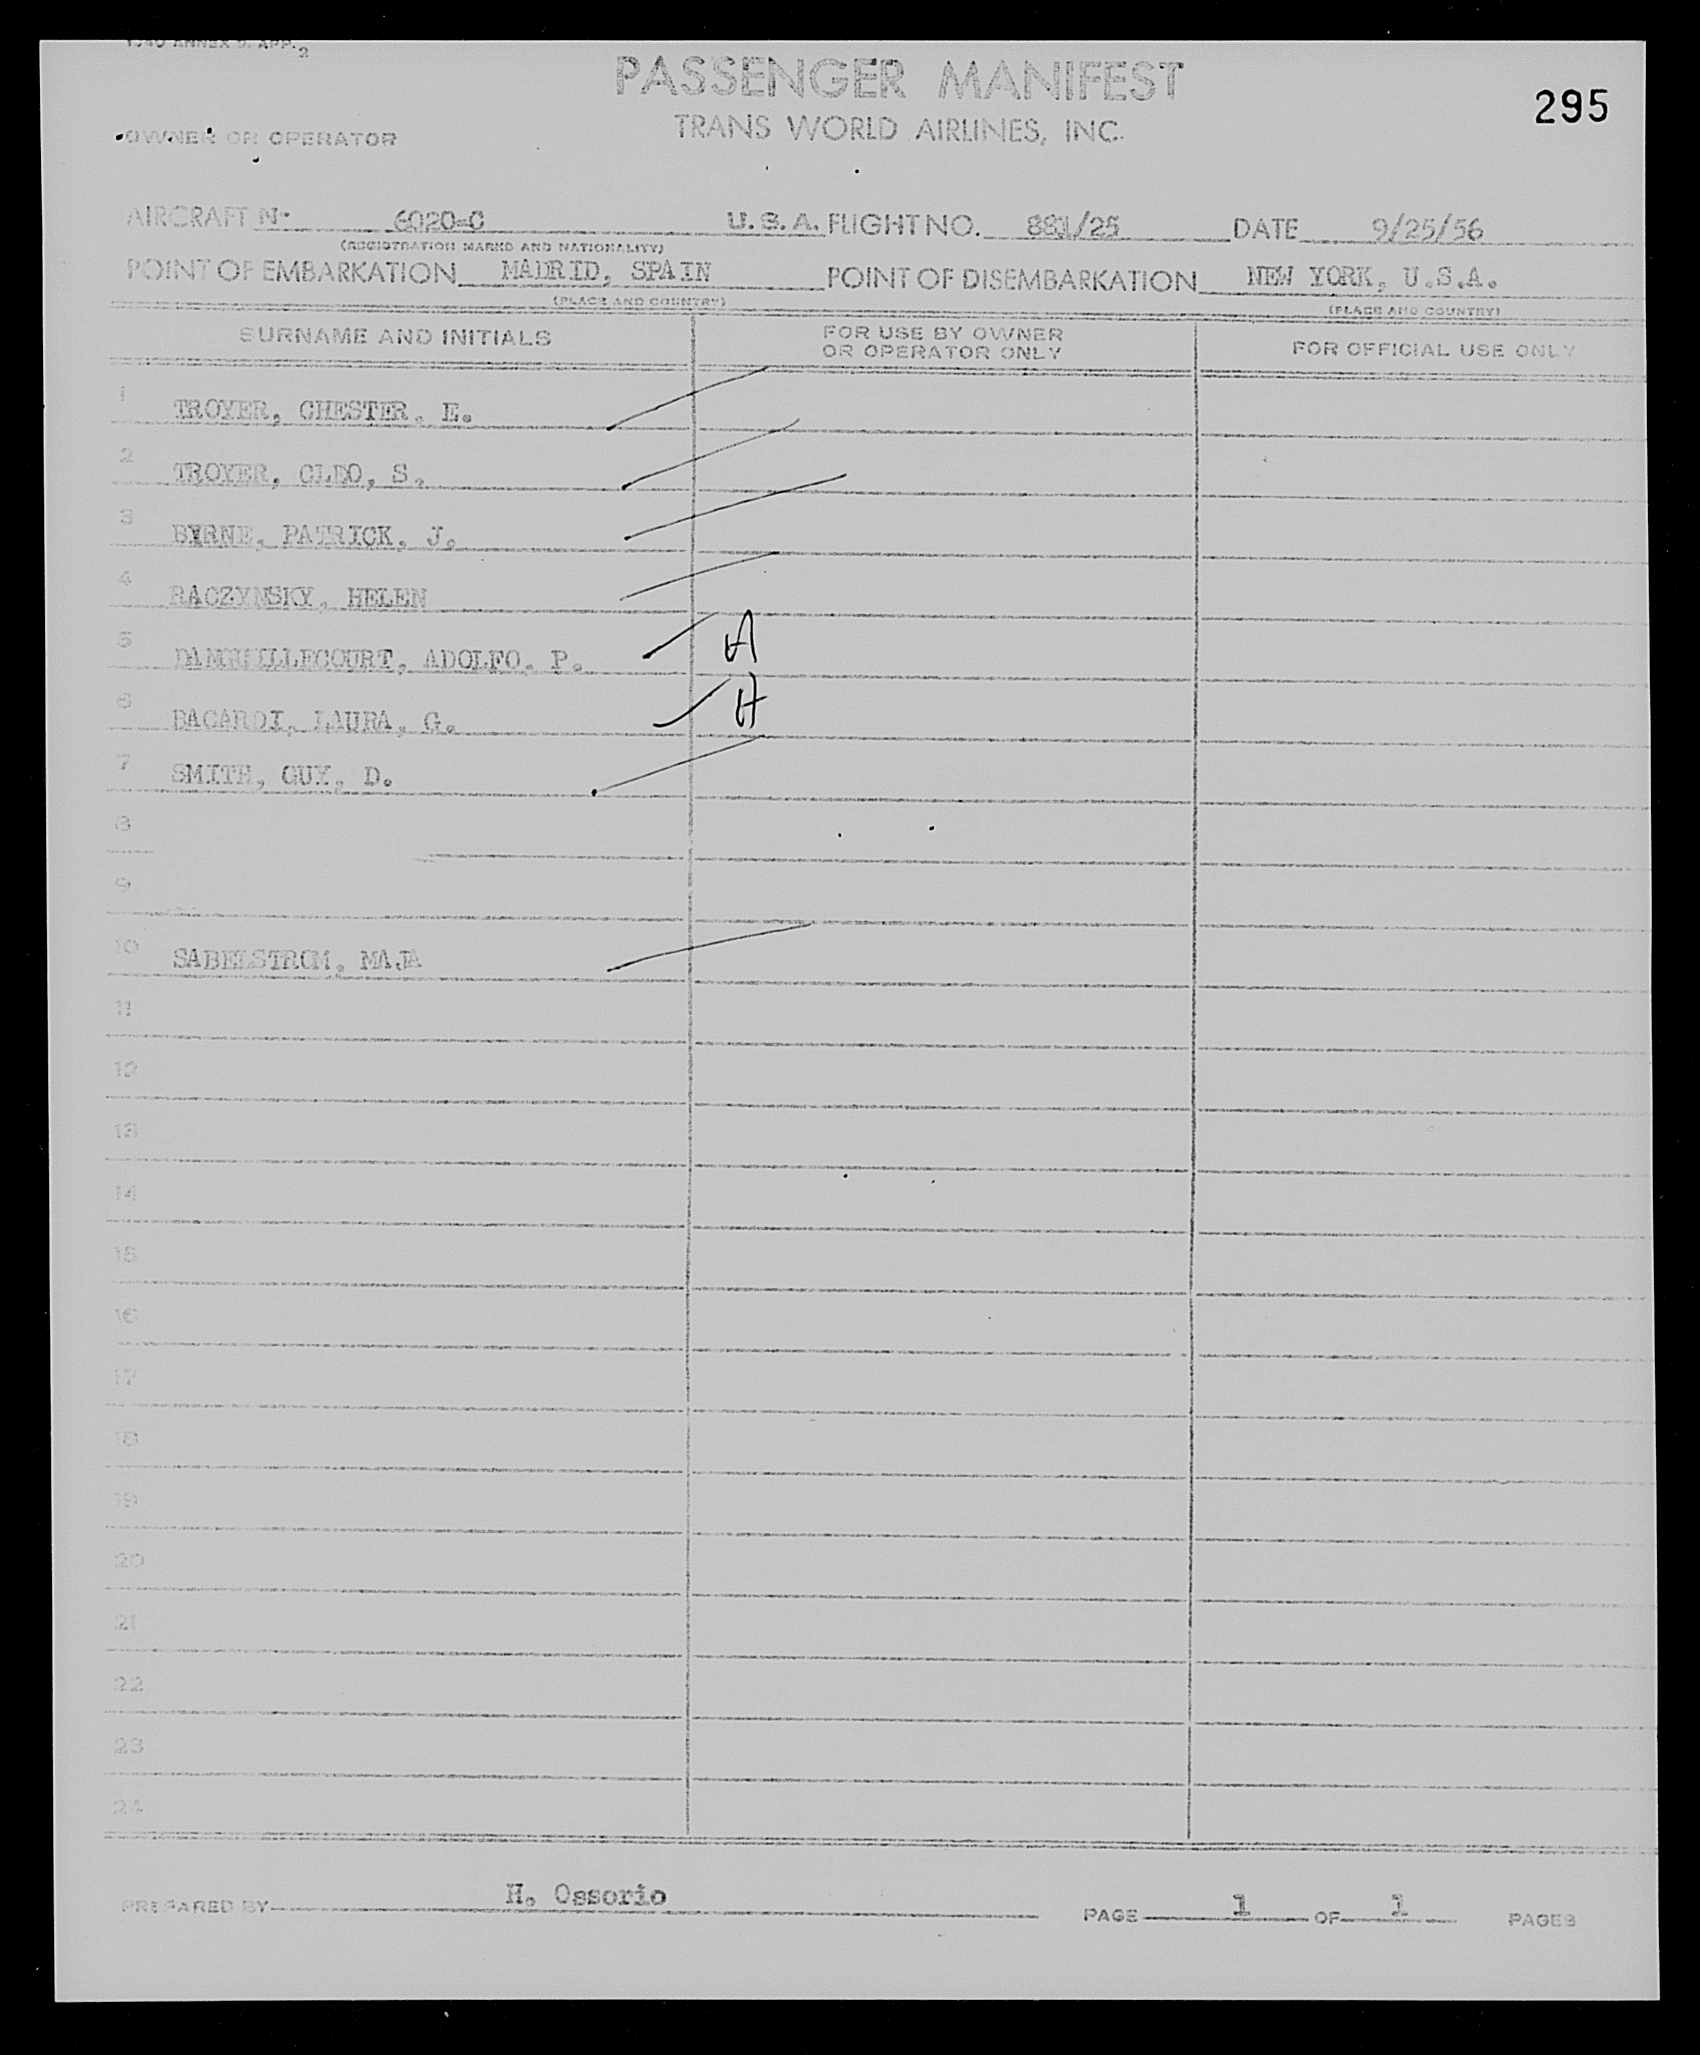 PASSENGER MANIFEST
295
TRANS WORLD AIRLINES, INC.
OWNER OR OPERATOR
AIRCRAFT No. 6020-C U.S.A. FLIGHT NO. 881/25 DATE 9/25/56
(REGISTRATION MARKS AND NATIONALITY)
POINT OF EMBARKATION MADRID, SPAIN POINT OF DISEMBARKATION NEW YORK, U.S.A.
(PLACE AND COUNTRY) (PLACE AND COUNTRY)
SURNAME AND INITIALS FOR USE BY OWNER OR OPERATOR ONLY FOR OFFICIAL USE ONLY
1 TROYER, CHESTER, E.
2 TROYER, CLEO, S.
3 BYRNE, PATRICK, J.
4 RACZYNSKY, HELEN
5 ADOLFO, P. A
6 BACARDI, LAURA, G. A
7 SMITH, GUY, D.
8
9
10 SABELSTROM, MAJA
11
12
13
14
15
16
17
18
19
20
21
22
23
24
PREPARED BY H. Ossorio PAGE 1 OF 1 PAGES